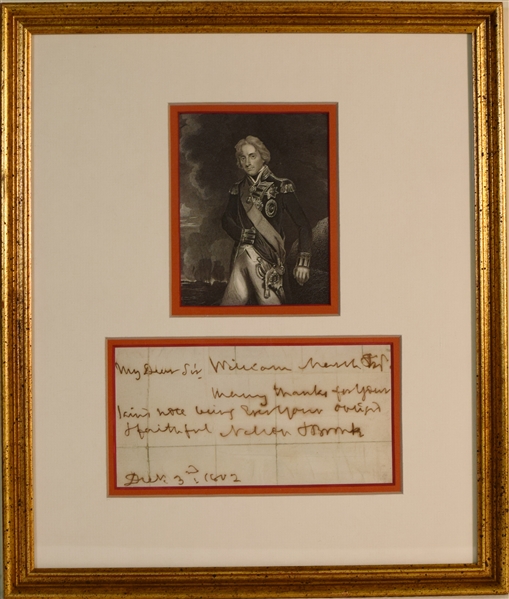 My Dear Sir William Marsh Esq.
Many thanks for your
kind note being Ever Your oblig'd
& faithful Nelson & Bronte
Dec. 3rd, 1802